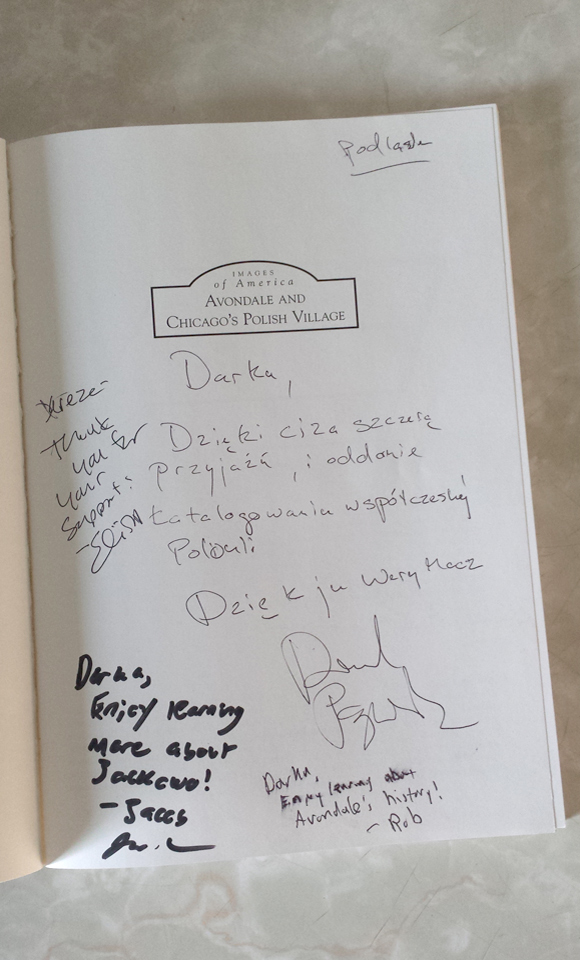 Podlasie
IMAGES
of America
AVONDALE AND
CHICAGO'S POLISH VILLAGE
Darka,
Dzięki ci za szczerą
przyjaźń, i oddanie
katalogowaniu współczesnej
Polonii
Dzięk ju Wery Macz
Thank
you for
your
support!
Darka,
Enjoy learning
more about
Jackowo!
- Jacob
Darka,
Enjoy learning about
Avondale's history!
- Rob